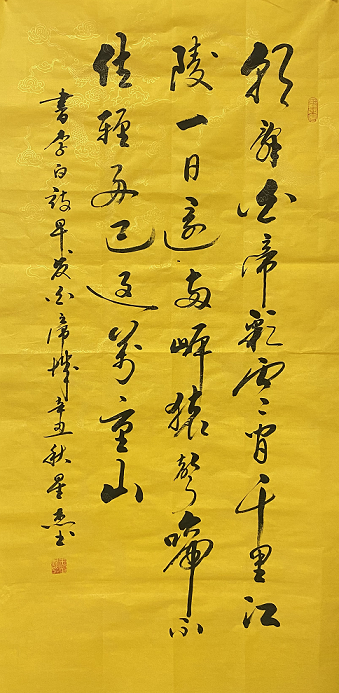 朝辭白帝彩雲間千里江
陵一日還兩岸猿聲啼不
住輕舟已過萬重山
書李白詩早發白帝城辛丑秋星